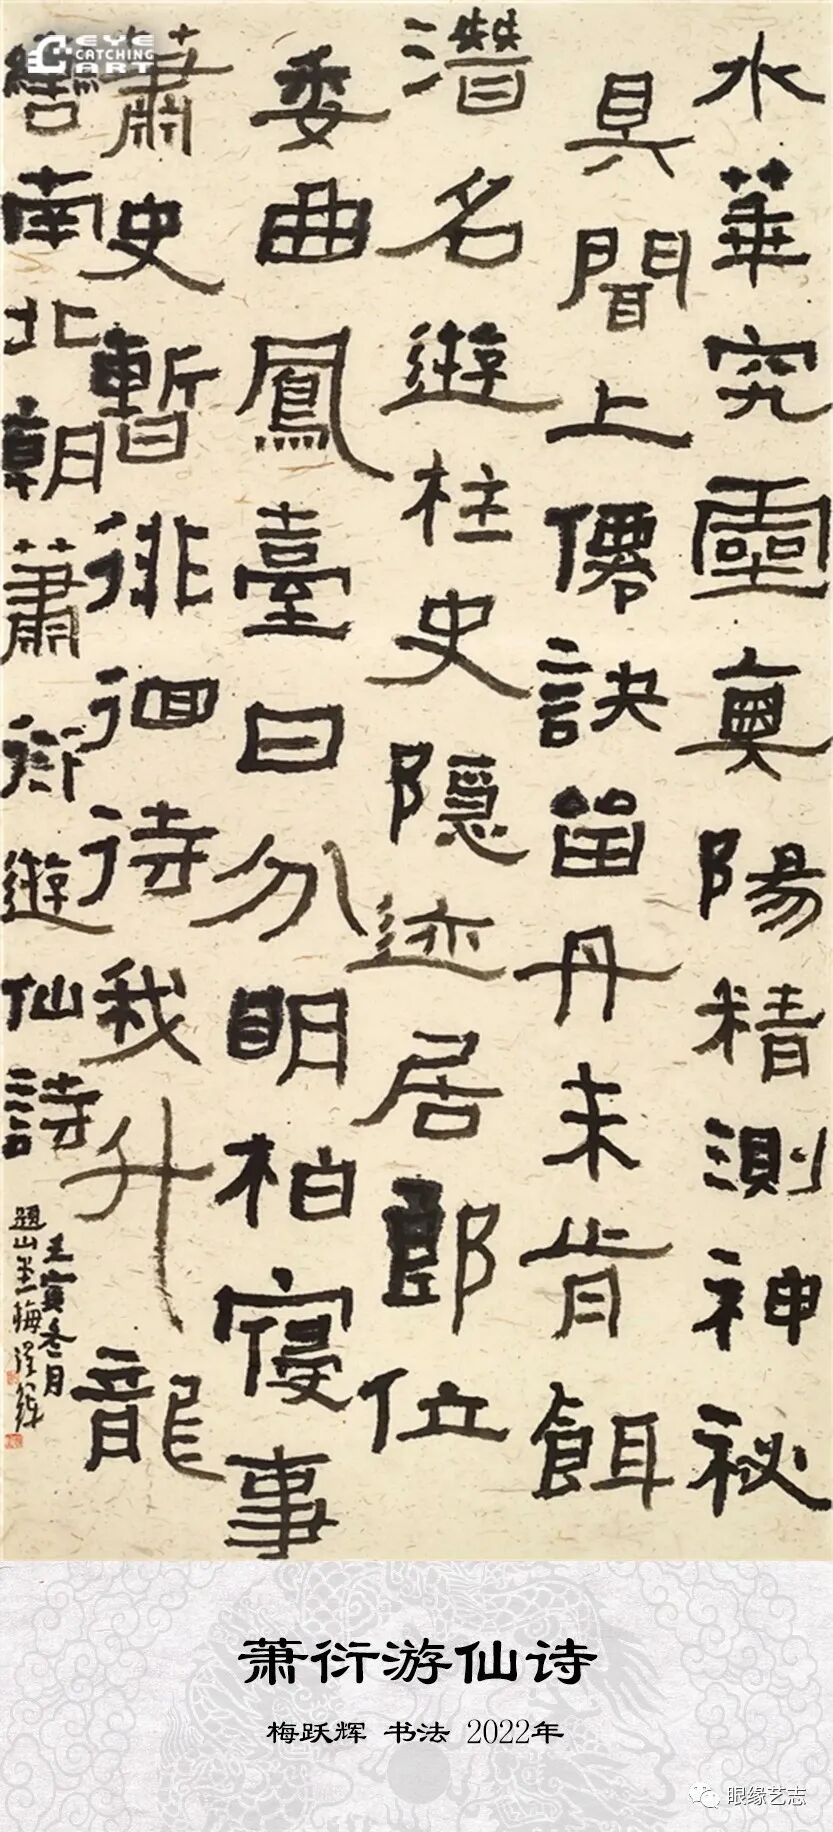 EYE CATCHING ART
水華究靈奧陽精測神祕
具聞上僊訣留丹未肯餌
潛名遊柱史隐迹居郎位
委曲鳳臺日分明柏寢事
蕭史暫徘徊待我升龍
轡南北朝蕭衍遊仙詩
壬寅冬月
萧衍游仙诗
梅跃辉 书法 2022年
眼缘艺志